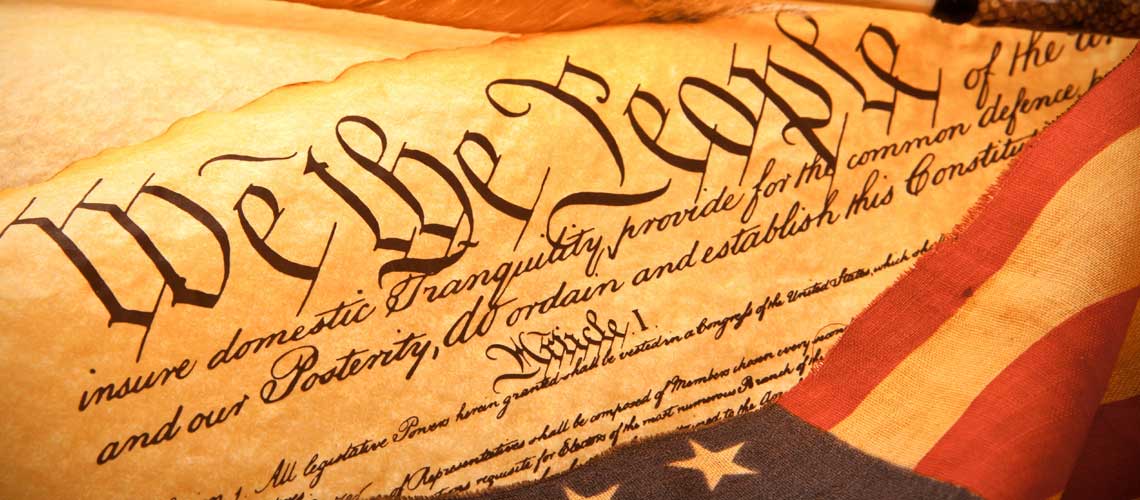 We the People of the
insure domestic Tranquility, provide for the common defence,
and our Posterity, do ordain and establish this
Article. I.
All legislative Powers herein granted shall be vested in a Congress of the United States, which
of Representatives shall be composed of Members chosen every
requisite for Electors of the most numerous Branch of the